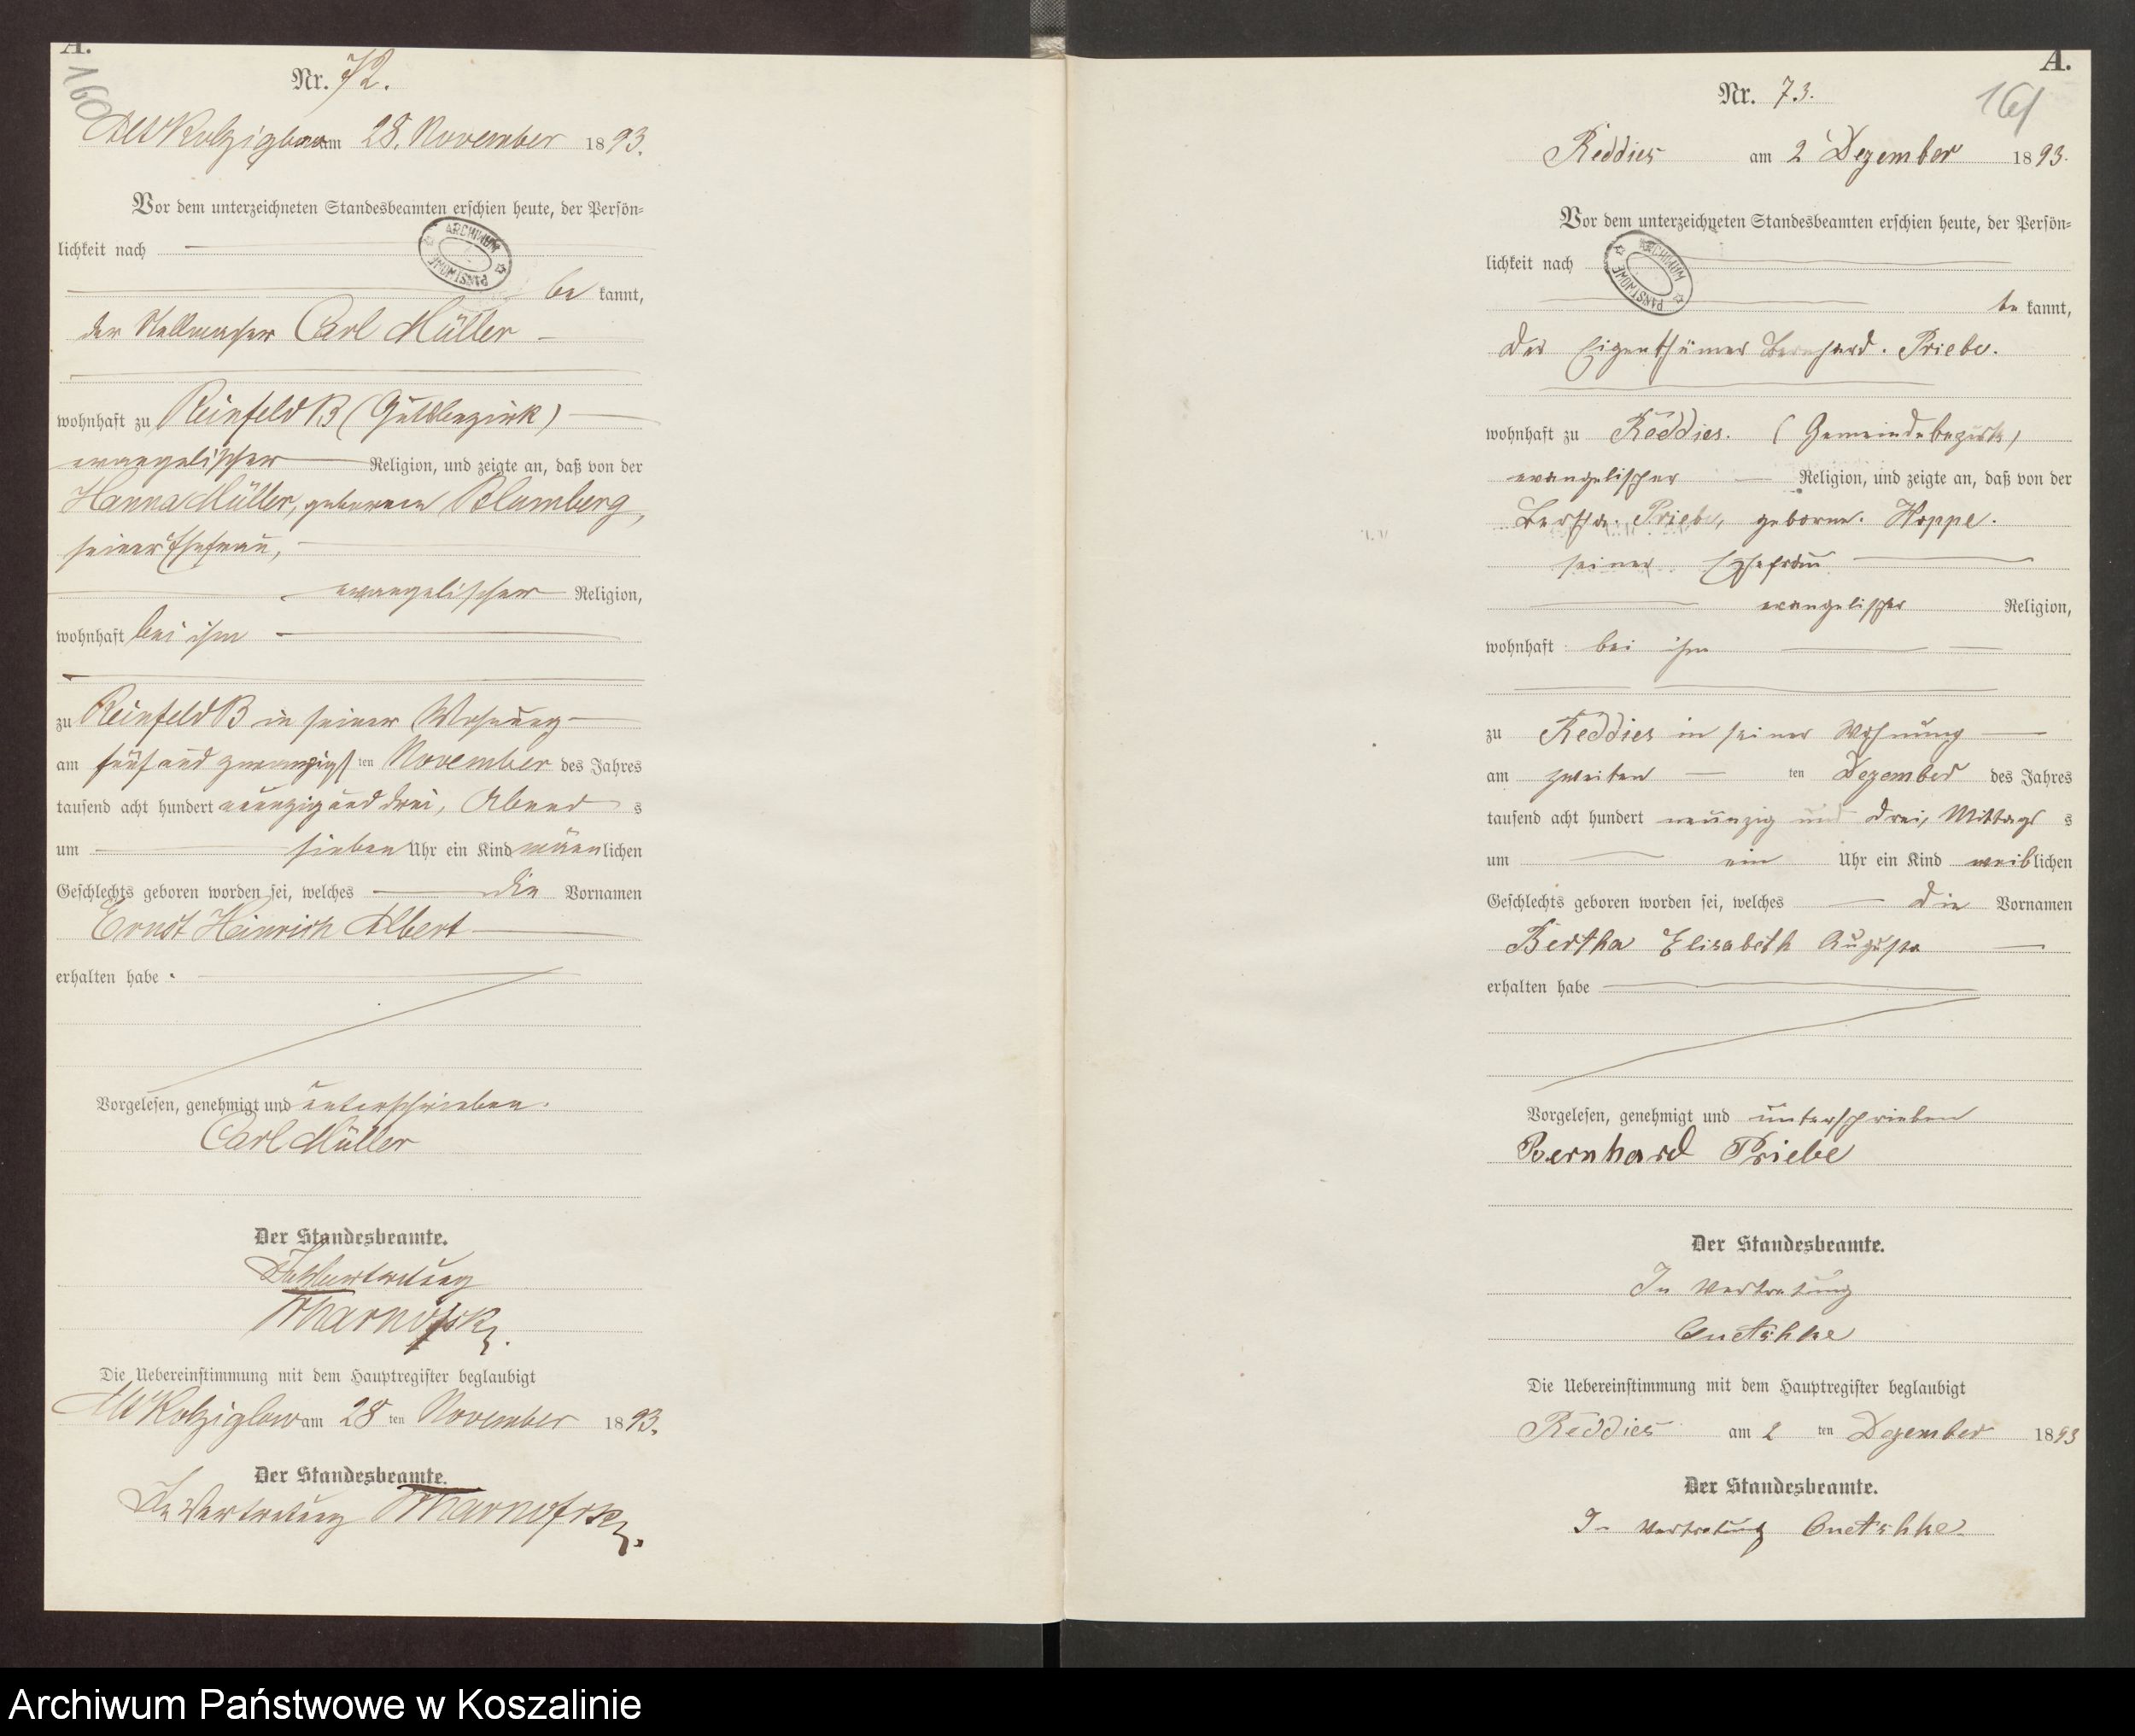 A.
160
Nr. 72.
Alt Kolziglow am 28. November 1893.
Vor dem unterzeichneten Standesbeamten erschien heute, der Persön-
lichkeit nach
ARCHIWUM PAŃSTWOWE
be kannt,
der Stellmacher Carl Müller
wohnhaft zu Reinfeld B (Gutsbezirk)
evangelischer Religion, und zeigte an, daß von der
Hanna Müller, geborenen Blumberg,
seiner Ehefrau,
evangelischer Religion,
wohnhaft bei ihm
zu Reinfeld B in seiner Wohnung
am fünf und zwanzigsten November des Jahres
tausend acht hundert neunzig und drei, Abends
um sieben Uhr ein Kind männlichen
Geschlechts geboren worden sei, welches die Vornamen
Ernst Heinrich Albert
erhalten habe.
Vorgelesen, genehmigt und unterschrieben.
Carl Müller
Der Standesbeamte.
In Vertretung
Die Uebereinstimmung mit dem Hauptregister beglaubigt
Alt Kolziglow am 28 ten November 1893.
Der Standesbeamte.
In Vertretung
A.
161
Nr. 73.
Reddies am 2 Dezember 1893.
Vor dem unterzeichneten Standesbeamten erschien heute, der Persön-
lichkeit nach
ARCHIWUM PAŃSTWOWE
be kannt,
der Eigenthümer Bernhard. Priebe.
wohnhaft zu Reddies. (Gemeindebezirk)
evangelischer Religion, und zeigte an, daß von der
Bertha. Priebe, geborne. Hoppe.
seiner Ehefrau
evangelischer Religion,
wohnhaft bei ihm
zu Reddies in seiner Wohnung
am zweiten ten Dezember des Jahres
tausend acht hundert neunzig und drei, Mittags s
um ein Uhr ein Kind weiblichen
Geschlechts geboren worden sei, welches die Vornamen
Bertha Elisabeth Augusta
erhalten habe
Vorgelesen, genehmigt und unterschrieben
Bernhard Priebe
Der Standesbeamte.
In Vertretung
Die Uebereinstimmung mit dem Hauptregister beglaubigt
Reddies am 2 ten Dezember 1893
Der Standesbeamte.
In Vertretung
Archiwum Państwowe w Koszalinie